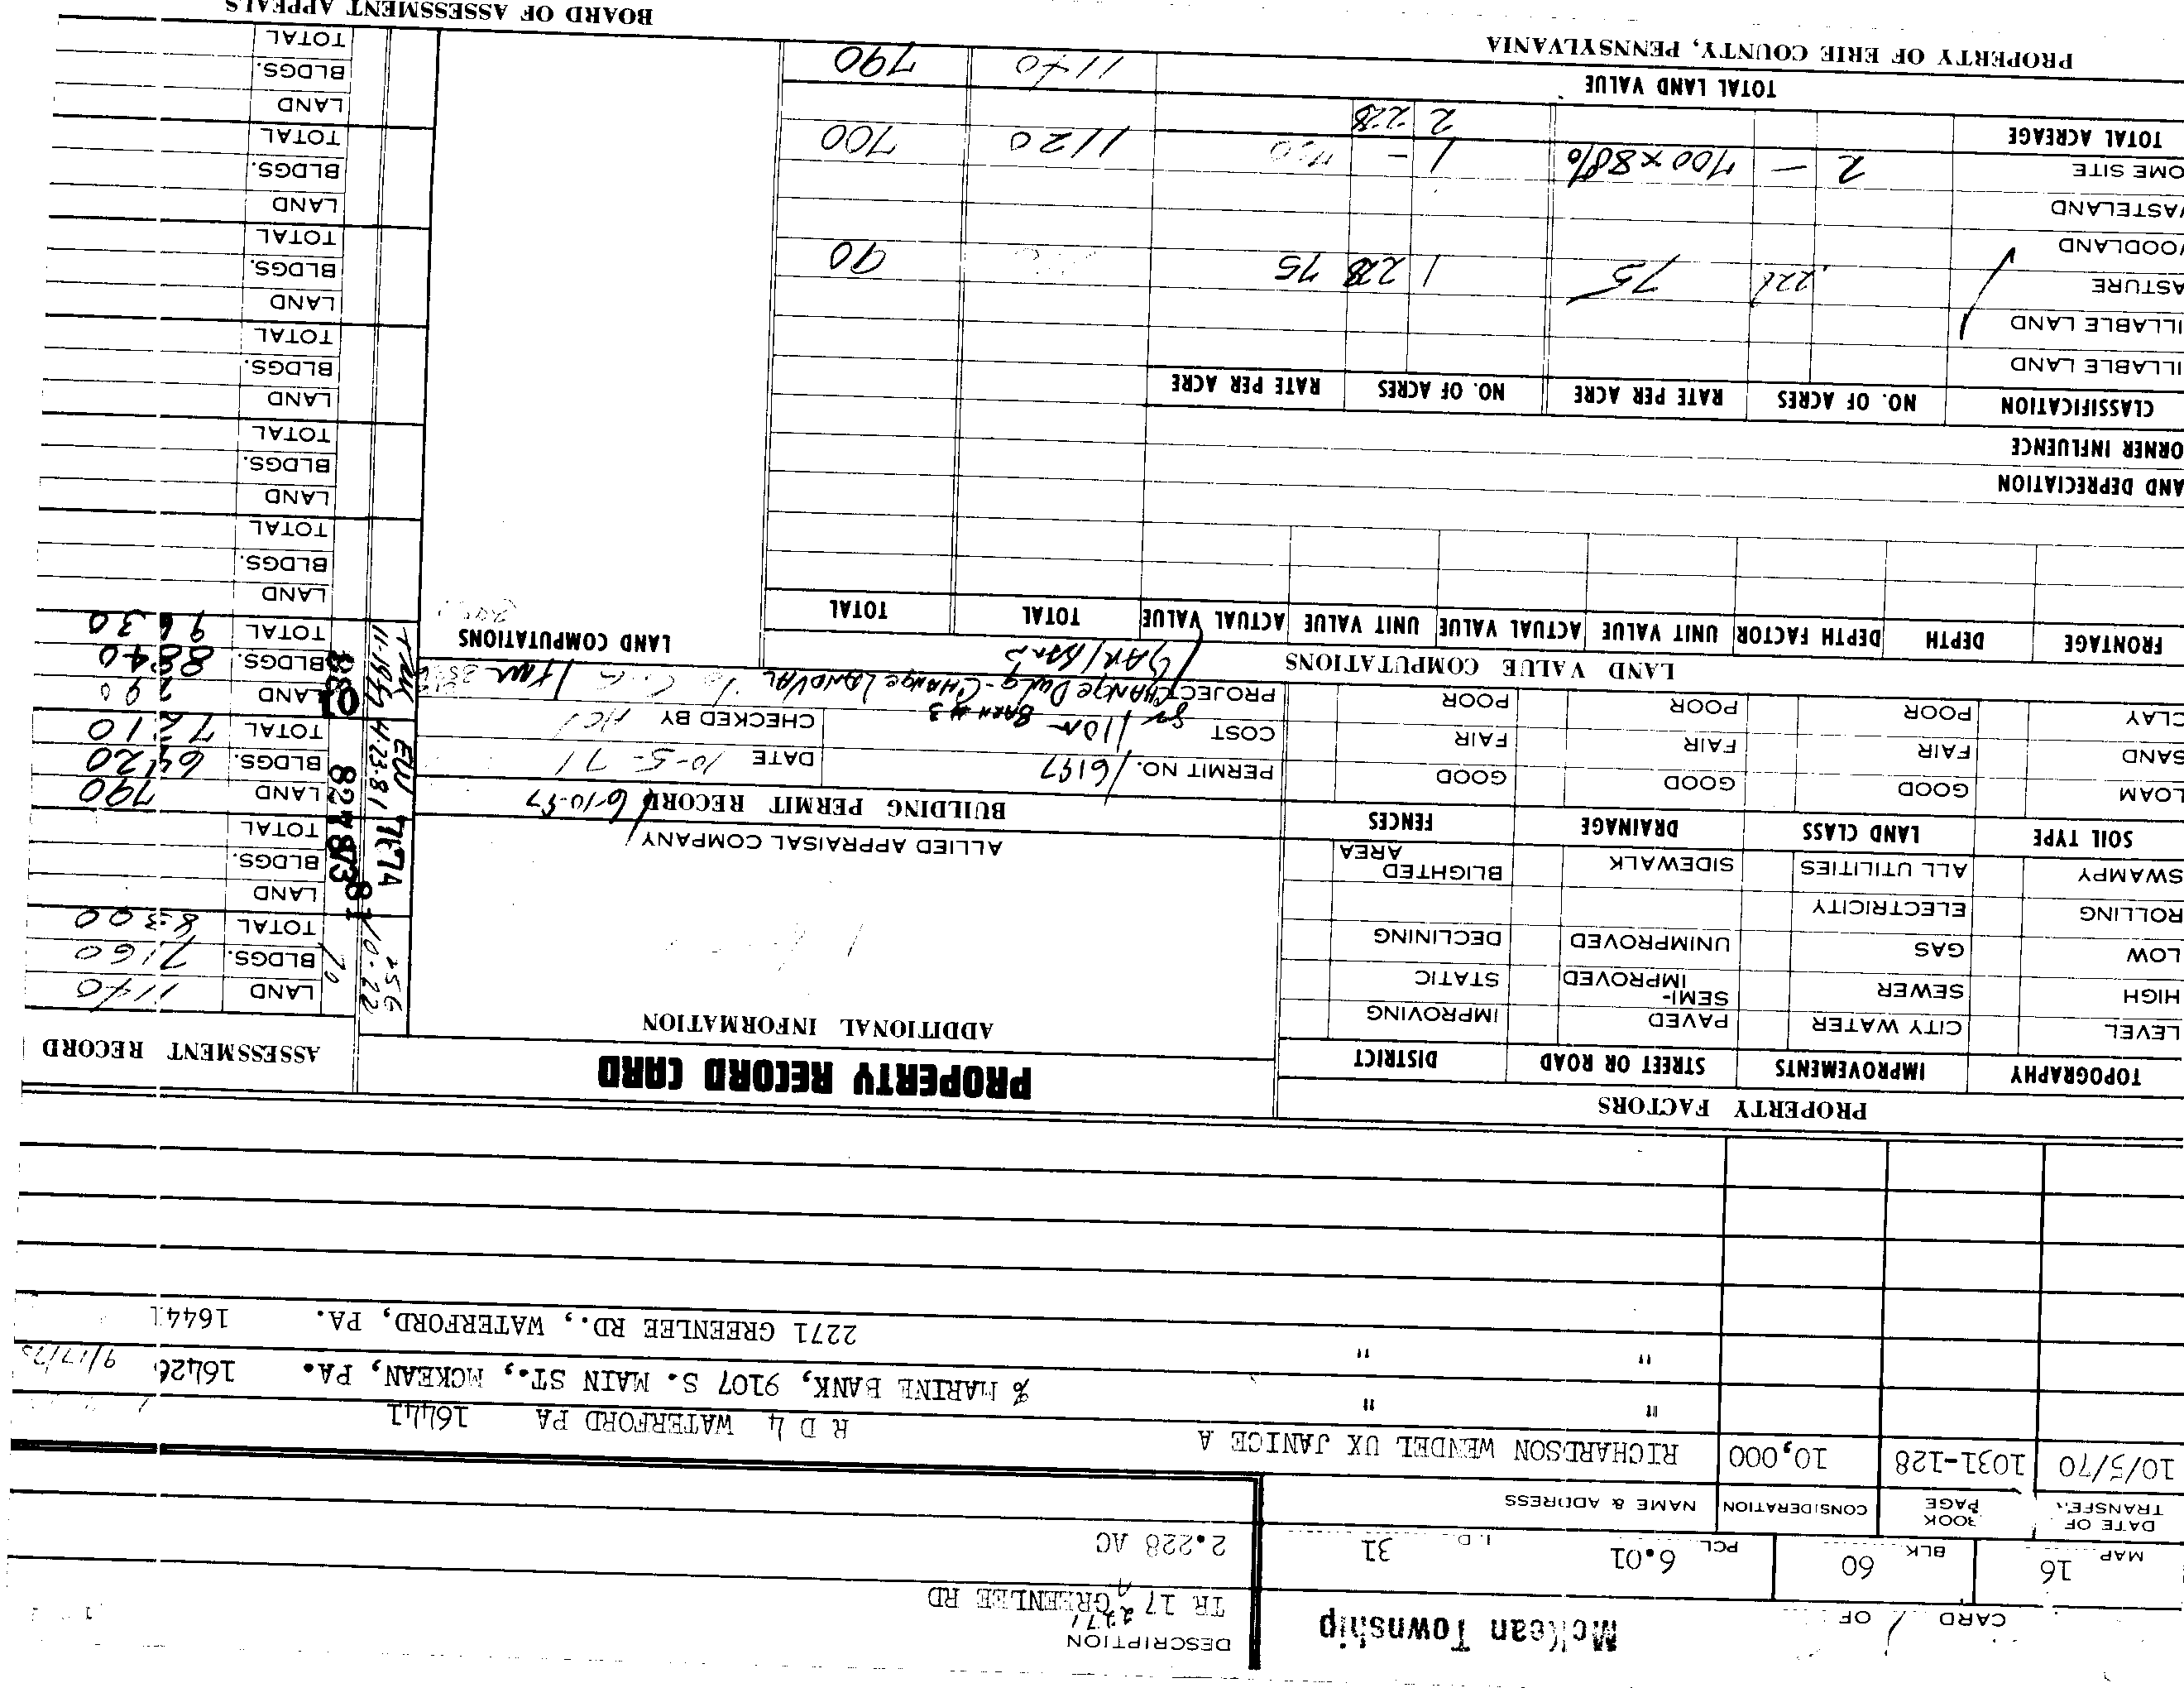 CARD 1 OF
McKean Township
DESCRIPTION
2271
TR 17 ^ GREENLEE RD
MAP 16 BLK 60 PCL 6.01 I.D. 31
2.228 AC
DATE OF TRANSFER BOOK PAGE CONSIDERATION NAME & ADDRESS
10/5/70 1031-128 10,000 RICHARDSON WENDEL UX JANICE A R D 4 WATERFORD PA 16441
" " % MARINE BANK, 9107 S. MAIN ST., MCKEAN, PA. 16426
" " 2271 GREENLEE RD., WATERFORD, PA. 16441
PROPERTY FACTORS
PROPERTY RECORD CARD
ASSESSMENT RECORD
TOPOGRAPHY IMPROVEMENTS STREET OR ROAD DISTRICT
ADDITIONAL INFORMATION
LEVEL CITY WATER PAVED IMPROVING
HIGH SEWER SEMI-IMPROVED STATIC
LOW GAS UNIMPROVED DECLINING
ROLLING ELECTRICITY
SWAMPY ALL UTILITIES SIDEWALK BLIGHTED AREA
ALLIED APPRAISAL COMPANY
SOIL TYPE LAND CLASS DRAINAGE FENCES
BUILDING PERMIT RECORD 6-10-87
LOAM GOOD GOOD GOOD
PERMIT NO. 16197 DATE 10-5-71
SAND FAIR FAIR FAIR
COST BARN #3 CHECKED BY
CLAY POOR POOR POOR
PROJECT CHANGE Dwlg - CHANGE LANDVAL
GAR/BARN
LAND VALUE COMPUTATIONS
LAND COMPUTATIONS
FRONTAGE DEPTH DEPTH FACTOR UNIT VALUE ACTUAL VALUE UNIT VALUE ACTUAL VALUE TOTAL TOTAL
AND DEPRECIATION
ORNER INFLUENCE
CLASSIFICATION NO. OF ACRES RATE PER ACRE NO. OF ACRES RATE PER ACRE
ILLABLE LAND
ILLABLE LAND
ASTURE .228 75 1 228 75 90
OODLAND
ASTELAND
OME SITE 2 - 700 x 88% 1 - 700 1120 700
TOTAL ACREAGE 2 228
TOTAL LAND VALUE 1140 790
PROPERTY OF ERIE COUNTY, PENNSYLVANIA
70
LAND 1140
BLDGS. 7160
TOTAL 8300
LAND
BLDGS.
TOTAL
LAND 790
BLDGS. 6420
TOTAL 7210
LAND 790
BLDGS. 8840
TOTAL 9630
LAND
BLDGS.
TOTAL
LAND
BLDGS.
TOTAL
LAND
BLDGS.
TOTAL
LAND
BLDGS.
TOTAL
LAND
BLDGS.
TOTAL
LAND
BLDGS.
TOTAL
BOARD OF ASSESSMENT APPEALS